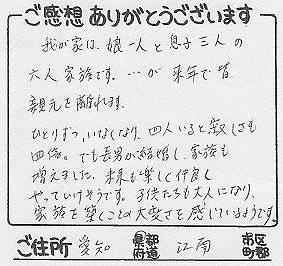 ご感想ありがとうございます
我が家は、娘一人と息子三人の
六人家族です。…が来年で皆
親元を離れます。
ひとりずつ、いなくなり、四人いると寂しさも
四倍。でも長男が結婚し、家族も
増えました。未来も楽しく仲良し
やっていけそうです。子供たちも大人になり、
家族を築くことの大変さを感じているようです。
ご住所 愛知 都道府県 江南 市区町郡